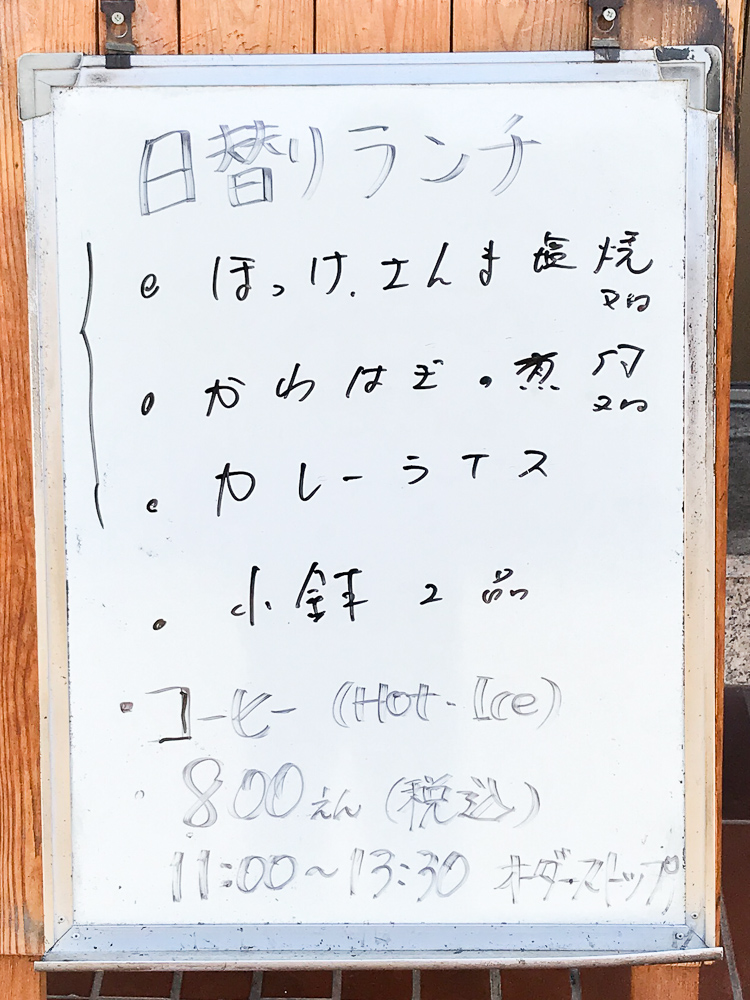 日替りランチ
・ほっけ.さんま塩焼
又は
・かわはぎ・煮付
又は
・カレーライス
・小鉢2品
・コーヒー(Hot・Ice)
800えん(税込)
11:00〜13:30 オーダーストップ